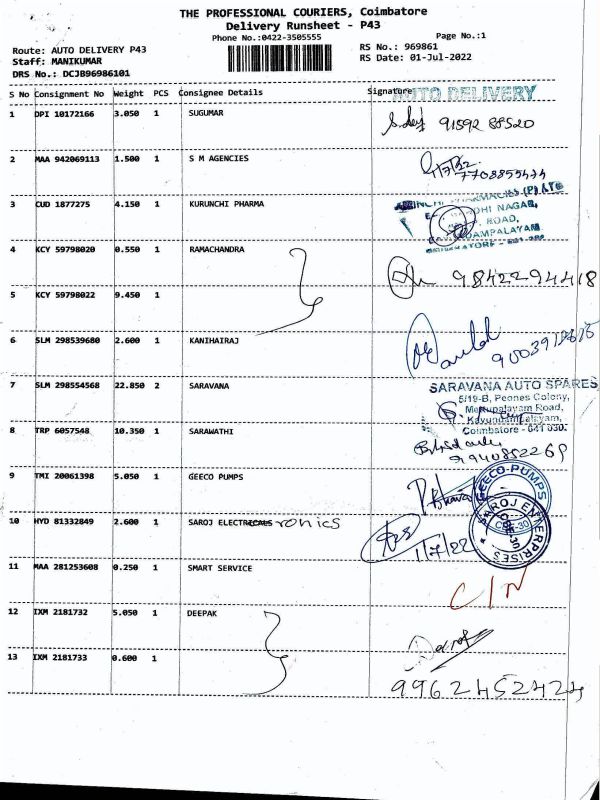 THE PROFESSIONAL COURIERS, Coimbatore
Delivery Runsheet - P43
Phone No.:0422-3505555
Page No.:1
Route: AUTO DELIVERY P43
RS No.: 969861
Staff: MANIKUMAR
RS Date: 01-Jul-2022
DRS No.: DCJB96986101
S No Consignment No Weight PCS Consignee Details Signature
AUTO DELIVERY
1 DPI 10172166 3.050 1 SUGUMAR
2 MAA 942069113 1.500 1 S M AGENCIES
7708855474
3 CUD 1877275 4.150 1 KURUNCHI PHARMA
GANDHI NAGAR,
ROAD,
4 KCY 59798020 0.550 1 RAMACHANDRA
9842294418
5 KCY 59798022 9.450 1
6 SLM 298539680 2.600 1 KANIHAIRAJ
7 SLM 298554568 22.850 2 SARAVANA
SARAVANA AUTO SPARES
5/19-B, Peones Colony,
Mettupalayam Road,
Kavundampalayam,
Coimbatore - 641 030.
8 TRP 6057548 10.350 1 SARAWATHI
9940852269
9 TMI 20061398 5.050 1 GEECO PUMPS
GEECO-PUMPS
10 HYD 81332849 2.600 1 SAROJ ELECTRICALS ronics
1/7/22
SAROJ ENTERPRISES
CBE-30
11 MAA 281253608 0.250 1 SMART SERVICE
C/N
12 IXM 2181732 5.050 1 DEEPAK
13 IXM 2181733 0.600 1
9962452424